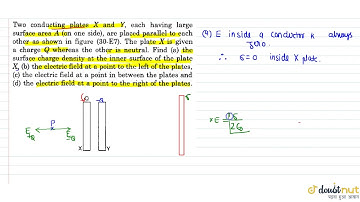 Two conducting plates X and Y, each having large
surface area A (on one side), are placed parallel to each
other as shown in figure (30-E7). The plate X is given
a charge Q whereas the other is neutral. Find (a) the
surface charge density at the inner surface of the plate
X, (b) the electric field at a point to the left of the plates,
(c) the electric field at a point in between the plates and
(d) the electric field at a point to the right of the plates.
P
E
X
Y
(a) E inside a conductor is always
zero.
∴ E=0 inside X plate.
doubtnut